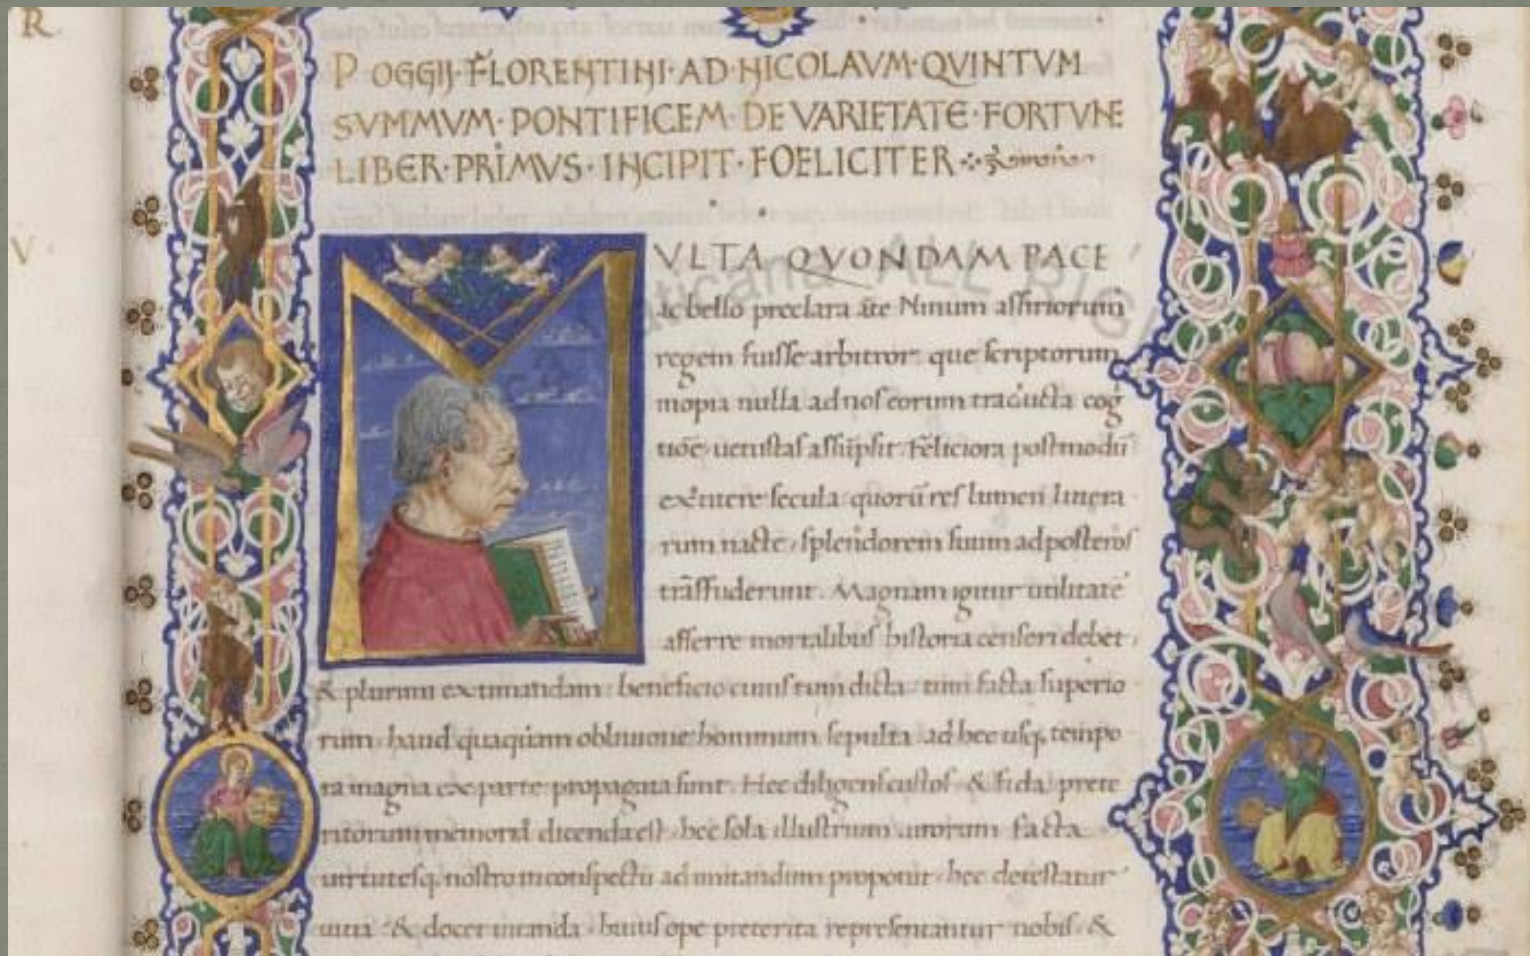 R.
V.
POGGIJ·FLORENTINI·AD·NICOLAVM·QVINTVM
SVMMVM·PONTIFICEM·DE VARIETATE·FORTVNE
LIBER·PRIMVS·INCIPIT·FOELICITER
MVLTA QVONDAM PACE
ac bello preclara āte Ninum assiriorum
regem fuisse arbitror: que scriptorum
inopia nulla ad nos eorum traducta cog
tiōe uetustas assūpsit. Feliciora postmodū
extitere secula quorū res lumen littera
rum nacte splendorem suum ad posteros
trāsfuderunt. Magnam igitur utilitatē
afferre mortalibus historia censeri debet,
& plurimi extimandam: beneficio cuius tum dicta tum facta superio
rum haud quaquam obliuione hominum sepulta ad hec usq, tempo
ra magna ex parte propagata sunt. Hec diligens custos & fida prete
ritorum memoria dicenda est hec sola illustrium uirorum facta
uirtutesq, nostro in conspectu ad imitandum proponit hec detestatur
uitia & docet uitanda huius ope preterita representantur nobis &
ALL RIG